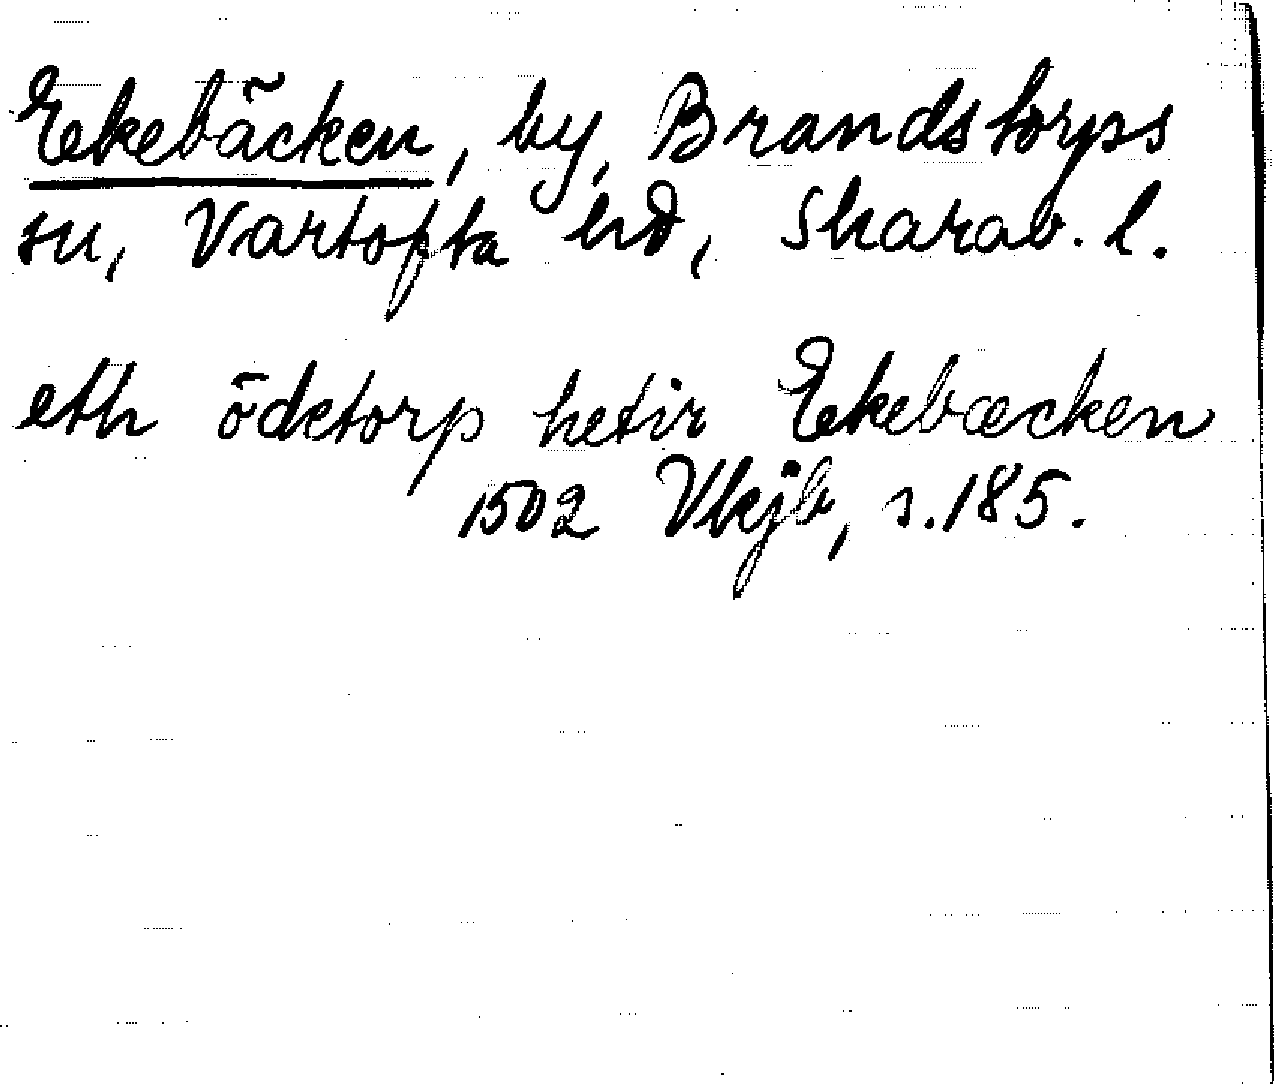 Ekebäcken, by, Brandstorps
sn, Vartofta hd, Skarab. l.
eth ödetorp hetir Ekebæcken
1502 Vkjb, s. 185.